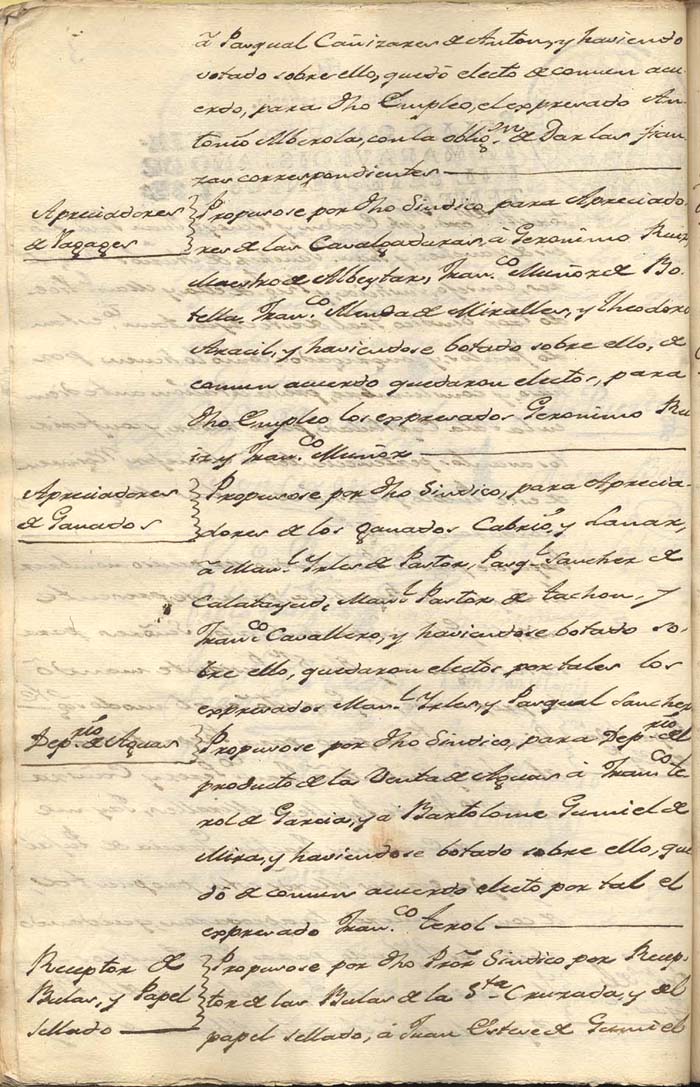 â Pasqual Cañizares de Anton, y haviendo
votado sobre ello, quedó electo de comun acu
erdo, para dho Empleo, el expresado An
tonio Alberola, con la oblig.on de Dar las fian
zas correspondientes
Apreciadores
de Vagages
Propusose por dho Sindico, para Apreciado
res de las Cavalgaduras, â Geronimo Ruiz
Maestro de Albeytar, Fran.co Muñoz de Bo-
tella, Fran.co de Miralles, y Theodoro
Aracil, y haviendose botado sobre ello, de
comun acuerdo quedaron electos, para
dho Empleo los expresados Geronimo Ru
iz y Fran.co Muñoz
Apreciadores
de Ganados
Propusose por dho Sindico, para Aprecia-
dores de los ganados Cabrio, y Lanar,
â Man.l Yrles de Pastor, Pasq.l Sanchez de
Calatayud, Man.l Pastor de tachon, y
Fran.co Cavallero, y haviendose botado so-
bre ello, quedaron electos por tales los
expresados Man.l Yrles, y Pasqual Sanchez
Dep.rio de Aguas
Propusose por dho Sindico, para Dep.rio del
producto de la Venta de Aguas â Fran.co te
rol de Garcia, y â Bartolome Gumiel de
Mira, y haviendose botado sobre ello, que
dó de comun acuerdo electo por tal el
expresado Fran.co terol
Receptor de
Bulas, y Papel
sellado
Propusose por dho Pror Sindico por Recep-
tor de las Bulas de la S.ta Cruzada, y del
papel sellado, â Juan Esteve de Gumiel